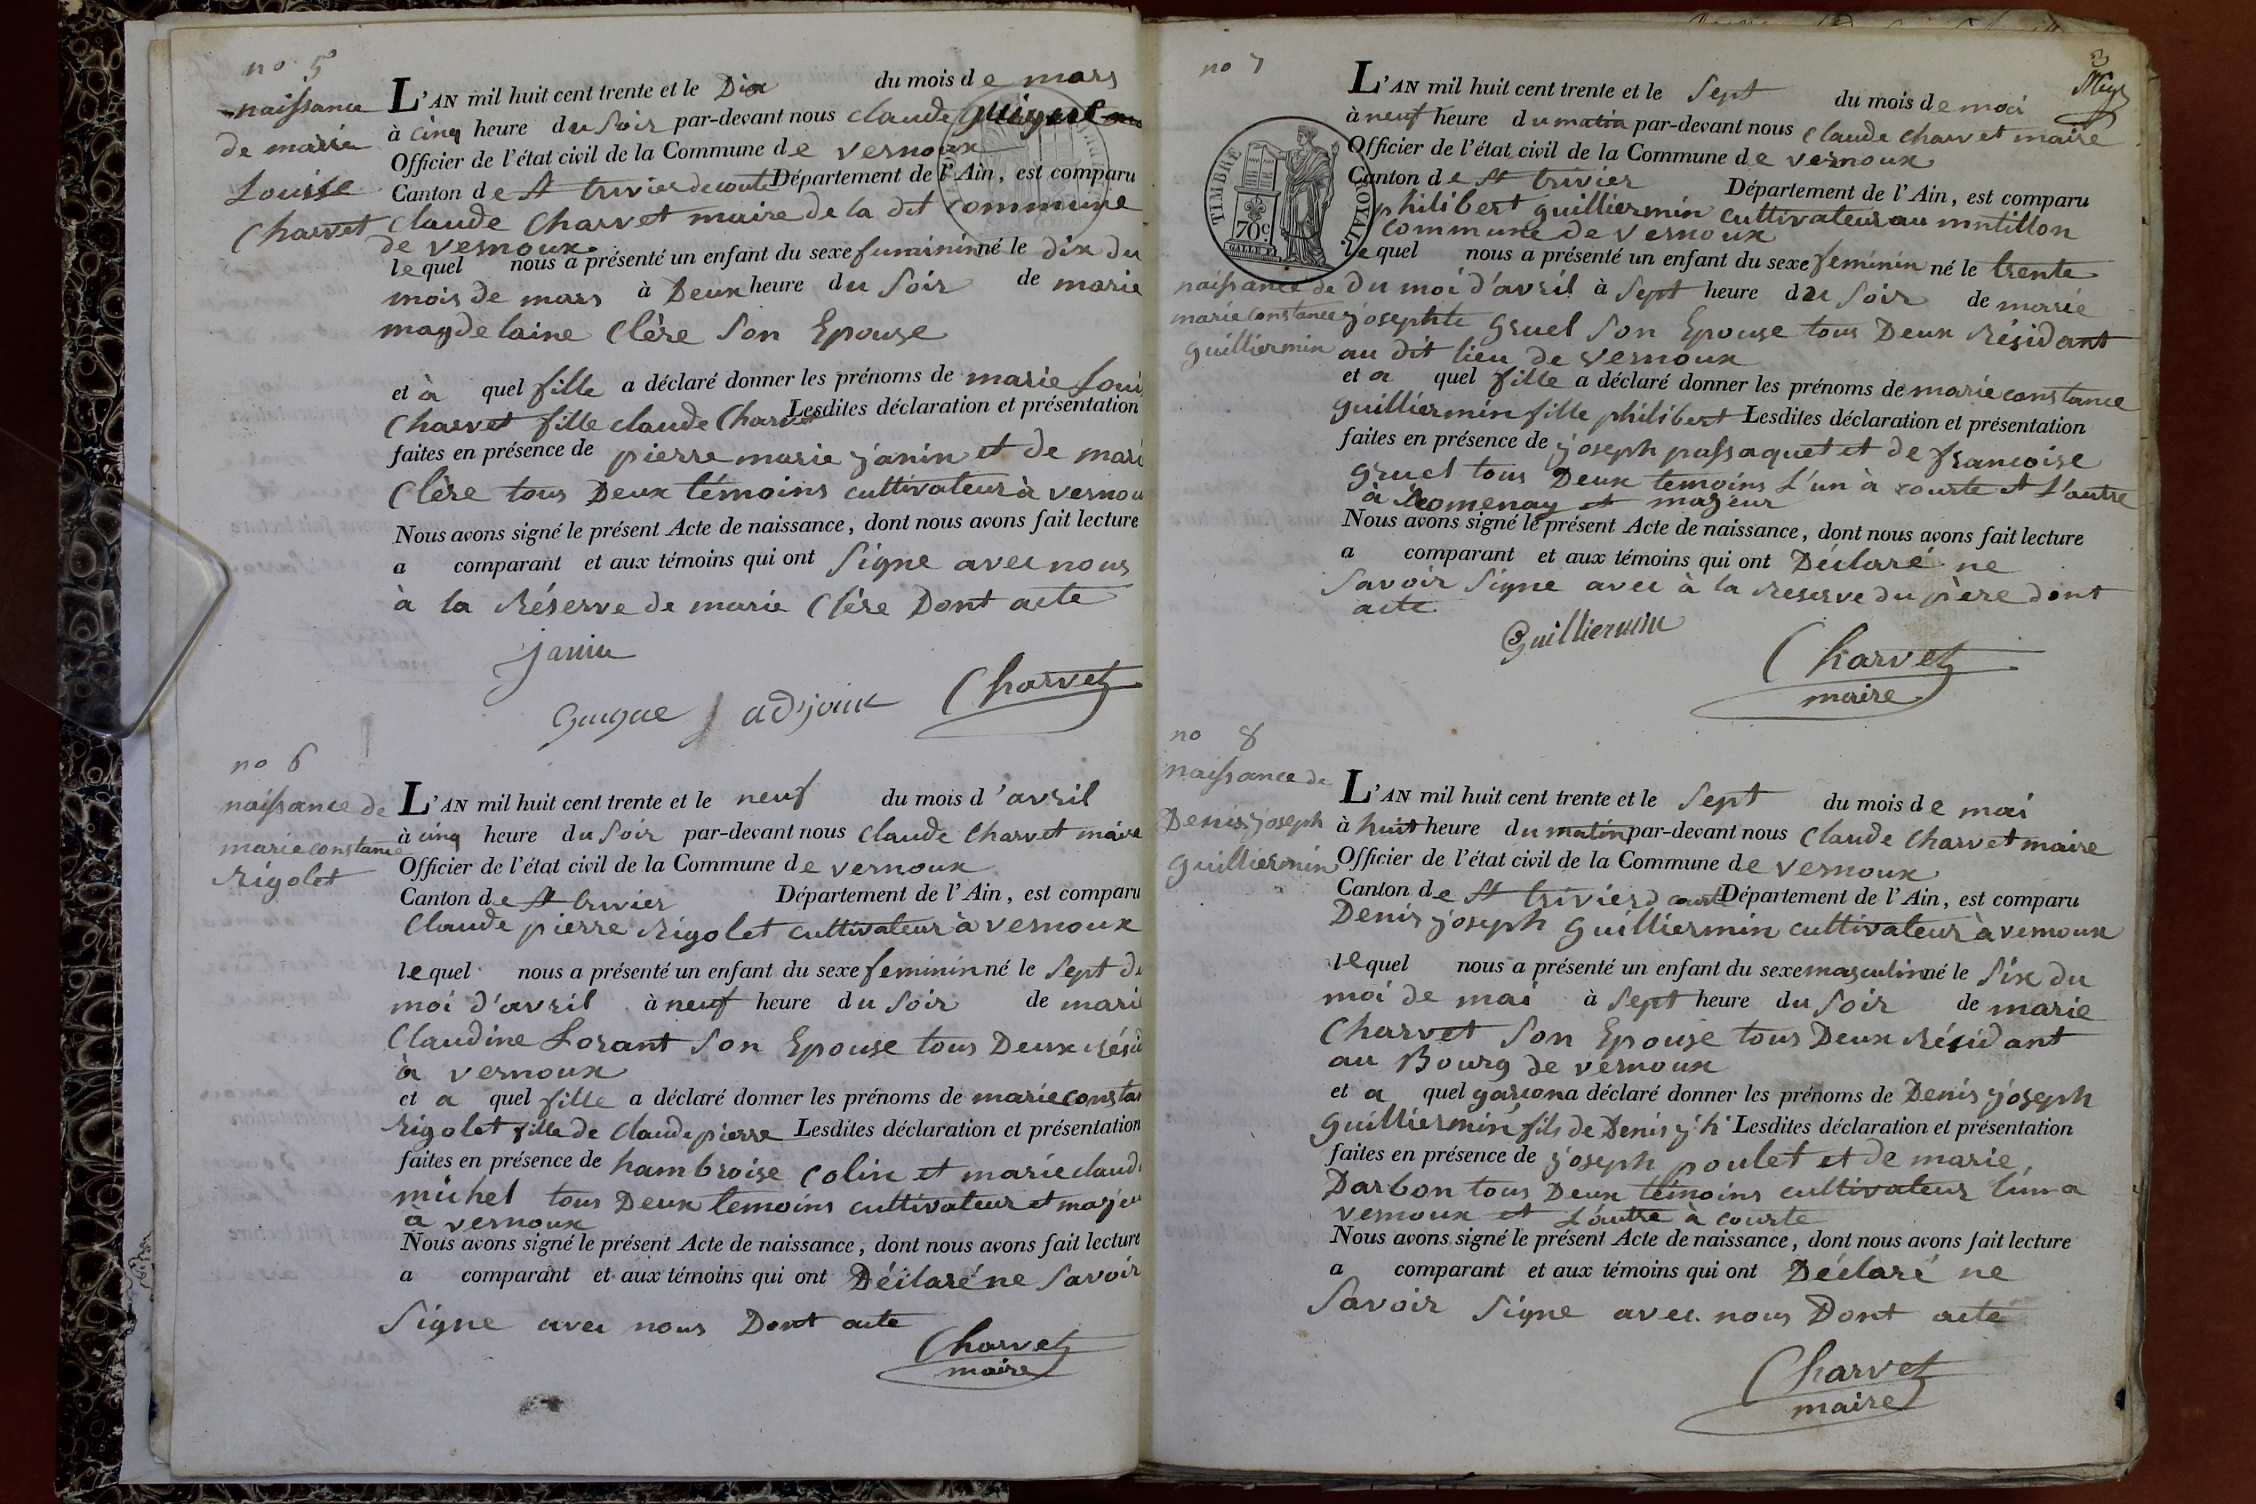 no 5
naissance
de marie
Louise
Charvet
L'AN mil huit cent trente et le Dix du mois de mars
à cinq heure du soir par-devant nous claude
Officier de l'état civil de la Commune de vernoux
Canton de St trivier de courte Département de l'Ain, est comparu
claude Charvet maire de la dit commune
de vernoux
lequel nous a présenté un enfant du sexe fuminin né le dix du
mois de mars à Deux heure du soir de marie
magdelaine Clère son Epouse
et à quel fille a déclaré donner les prénoms de marie Loui
Charvet fille claude Charvet Lesdites déclaration et présentation
faites en présence de pierre marie janin et de mari
Clère tous Deux témoins cultivateur à vernou
Nous avons signé le présent Acte de naissance, dont nous avons fait lecture
a comparant et aux témoins qui ont signe avec nous
à la Réserve de marie Clère Dont acte
janin
Guigue adjoint Charvet
no 6
naissance de
marie constance
Rigolet
L'AN mil huit cent trente et le neuf du mois d'avril
à cinq heure du soir par-devant nous claude Charvet maire
Officier de l'état civil de la Commune de vernoux
Canton de St trivier Département de l'Ain, est comparu
Claude pierre Rigolet cultivateur à vernoux
lequel nous a présenté un enfant du sexe feminin né le sept du
moi d'avril à neuf heure du soir de mari
Claudine Lorant son Epouse tous Deux résid
à vernoux
et a quel fille a déclaré donner les prénoms de marie constan
Rigolet fille de claude pierre Lesdites déclaration et présentation
faites en présence de hambroise Colin et marie claud
michel tous Deux temoins cultivateur et majeu
à vernoux
Nous avons signé le présent Acte de naissance, dont nous avons fait lecture
a comparant et aux témoins qui ont Déclaré ne savoir
signe avec nous Dont acte
Charvet
maire
3
no 7
naissance de
marie constance
guilliermin
L'AN mil huit cent trente et le sept du mois de mai
à neuf heure du matin par-devant nous Claude Charvet maire
Officier de l'état civil de la Commune de vernoux
Canton de St trivier Département de l'Ain, est comparu
philibert guilliermin cultivateur au mntillon
commune de vernoux
lequel nous a présenté un enfant du sexe feminin né le trente
du moi d'avril à sept heure du soir de marie
josephte gruel son Epouse tous Deux Résidant
au dit lieu de vernoux
et a quel fille a déclaré donner les prénoms de marie constance
guilliermin fille philibert Lesdites déclaration et présentation
faites en présence de joseph passaquet et de francoise
gruel tous Deux temoins l'un à courte et l'autre
à Romenay et majeur
Nous avons signé le présent Acte de naissance, dont nous avons fait lecture
a comparant et aux témoins qui ont Déclaré ne
savoir signe avec à la reserve du père dont
acte
Guilliermin
Charvet
maire
TIMBRE ROYAL
70c
GALLE F.
no 8
naissance de
Denis joseph
guilliermin
L'AN mil huit cent trente et le sept du mois de mai
à huit heure du matin par-devant nous Claude Charvet maire
Officier de l'état civil de la Commune de vernoux
Canton de St trivier d courte Département de l'Ain, est comparu
Denis joseph guilliermin cultivateur à vernoux
lequel nous a présenté un enfant du sexe masculin né le six du
moi de mai à sept heure du soir de marie
Charvet son Epouse tous Deux résidant
au Bourg de vernoux
et a quel garcon a déclaré donner les prénoms de Denis joseph
guilliermin fils de Denis j'h Lesdites déclaration et présentation
faites en présence de joseph poulet et de marie
Darbon tous Deux témoins cultivateur l'un a
vernoux et l'autre à courte
Nous avons signé le présent Acte de naissance, dont nous avons fait lecture
a comparant et aux témoins qui ont Déclaré ne
savoir signe avec nous Dont acte
Charvet
maire